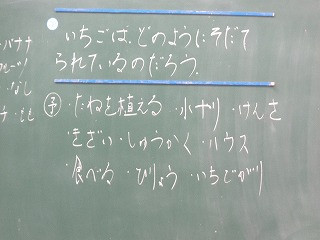 いちごは、どのようにそだて
られているのだろう。
バナナ
なし
もも
㋙ ・たねを植える ・水やり ・けんさ
・きざい ・しゅうかく ・ハウス
・食べる ・びょう ・いちごがり